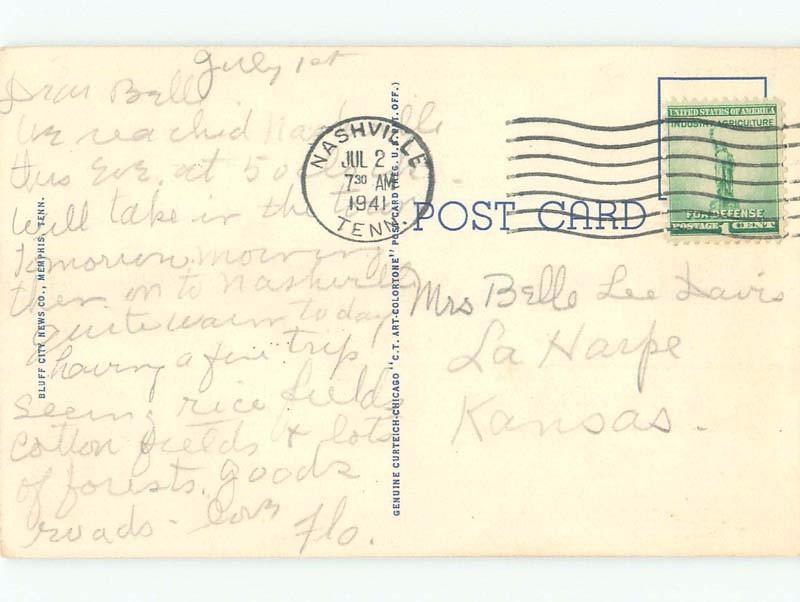 July 1st
Dear Bell
We reached Nashville
this eve. at 5
will take in the town
tomorrow morning
then on to Nashville
quite warm today
having a fine trip
seeing rice fields
cotton fields & lots
of forests. goods
roads - Love
Flo.
BLUFF CITY NEWS CO., MEMPHIS, TENN.
GENUINE CURTEICH-CHICAGO "C.T. ART-COLORTONE" POST CARD (REG. U.S. PAT. OFF.)
NASHVILLE
JUL 2
7 30 AM
1941
TENN.
POST CARD
UNITED STATES OF AMERICA
INDUSTRY AGRICULTURE
FOR DEFENSE
POSTAGE 1 CENT
Mrs Belle Lee Davis
La Harpe
Kansas.